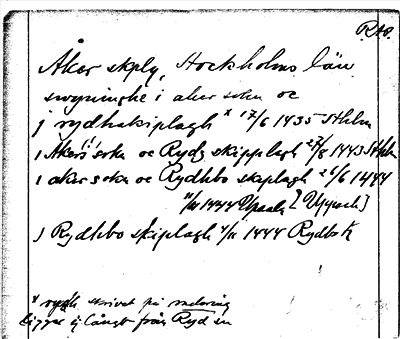 RAP.
Åker skplg, Stockholms län
swyninghe i aker sokn oc
j rydhskiplagh x 17/6 1435 Sthlm
i Åkers(!) sokn oc Rydz skipplagh 27/8 1443 Sthlm
i aker sokn oc Rydhbo skeplagh 26/6 1444
1444 Upsala [Uppsala]
j Rydhbo skiplagh 1444 Rydbo k
x rydh skrivet på rasering
ligger ej långt från Ryd sn